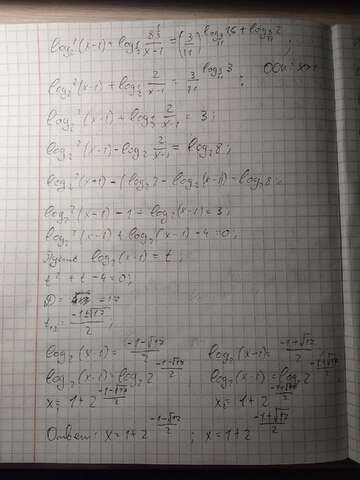 log₂²(x-1) - log₂ 8/(x-1) = (3/11)^(log 1,5 + log 2);
log₂²(x-1) + log 2/(x-1) = 3/11^(log 3); ООИ: x>1
log₂²(x-1) + log 2/(x-1) = 3;
log₂²(x-1) - log₂ 2/(x-1) = log₂8;
log₂²(x-1) - (log₂2 - log₂(x-1)) = log₂8;
log₂²(x-1) - 1 + log₂(x-1) = 3;
log₂²(x-1) + log₂(x-1) - 4 = 0;
Пусть log₂(x-1) = t;
t² + t - 4 = 0;
D = 17
t₁,₂ = (-1±√17)/2;
log₂(x-1) = (-1-√17)/2 log₂(x-1) = (-1+√17)/2
log₂(x-1) = log₂2^((-1-√17)/2) log₂(x-1) = log₂2^((-1+√17)/2);
x₁ = 1+2^((-1-√17)/2) x₂ = 1+2^((-1+√17)/2)
Ответ: x = 1+2^((-1-√17)/2); x = 1+2^((-1+√17)/2)